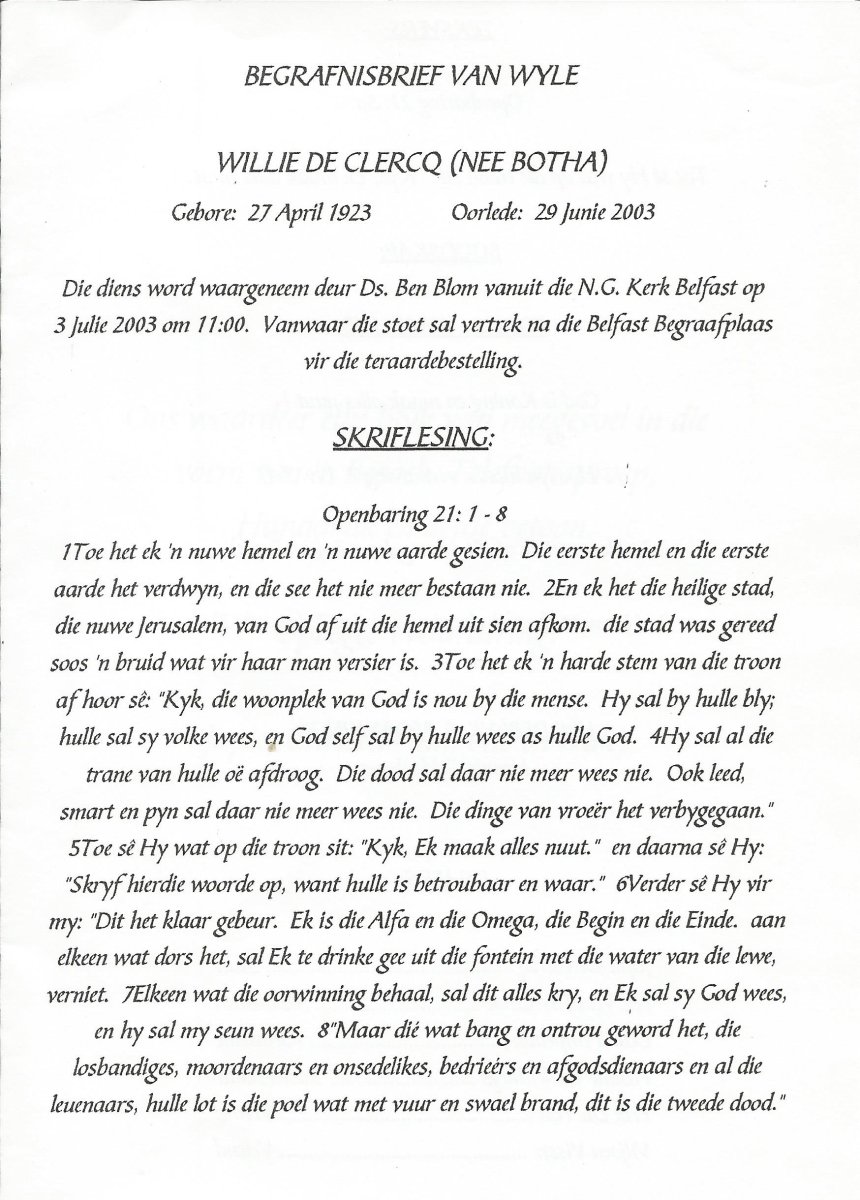 BEGRAFNISBRIEF VAN WYLE
WILLIE DE CLERCQ (NEE BOTHA)
Gebore: 27 April 1923 Oorlede: 29 Junie 2003
Die diens word waargeneem deur Ds. Ben Blom vanuit die N.G. Kerk Belfast op
3 Julie 2003 om 11:00. Vanwaar die stoet sal vertrek na die Belfast Begraafplaas
vir die teraardebestelling.
SKRIFLESING:
Openbaring 21: 1 - 8
1Toe het ek 'n nuwe hemel en 'n nuwe aarde gesien. Die eerste hemel en die eerste
aarde het verdwyn, en die see het nie meer bestaan nie. 2En ek het die heilige stad,
die nuwe Jerusalem, van God af uit die hemel uit sien afkom. die stad was gereed
soos 'n bruid wat vir haar man versier is. 3Toe het ek 'n harde stem van die troon
af hoor sê: "Kyk, die woonplek van God is nou by die mense. Hy sal by hulle bly;
hulle sal sy volke wees, en God self sal by hulle wees as hulle God. 4Hy sal al die
trane van hulle oë afdroog. Die dood sal daar nie meer wees nie. Ook leed,
smart en pyn sal daar nie meer wees nie. Die dinge van vroeër het verbygegaan."
5Toe sê Hy wat op die troon sit: "Kyk, Ek maak alles nuut." en daarna sê Hy:
"Skryf hierdie woorde op, want hulle is betroubaar en waar." 6Verder sê Hy vir
my: "Dit het klaar gebeur. Ek is die Alfa en die Omega, die Begin en die Einde. aan
elkeen wat dors het, sal Ek te drinke gee uit die fontein met die water van die lewe,
verniet. 7Elkeen wat die oorwinning behaal, sal dit alles kry, en Ek sal sy God wees,
en hy sal my seun wees. 8"Maar dié wat bang en ontrou geword het, die
losbandiges, moordenaars en onsedelikes, bedrieérs en afgodsdienaars en al die
leuenaars, hulle lot is die poel wat met vuur en swael brand, dit is die tweede dood."